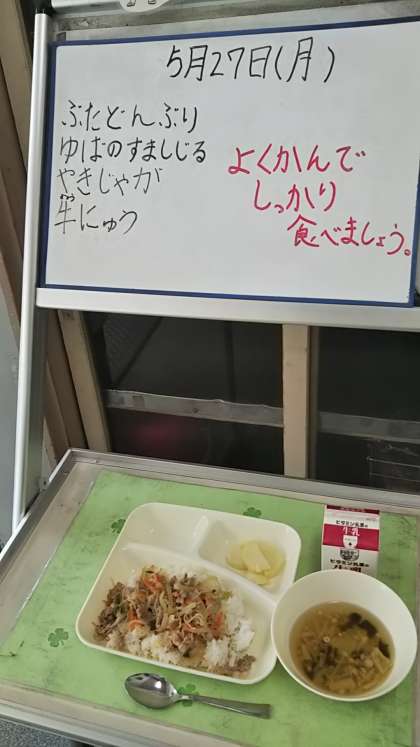 5月27日(月)
ぶたどんぶり
ゆばのすましじる
やきじゃが
牛にゅう
よくかんで
しっかり
食べましょう。
牛乳